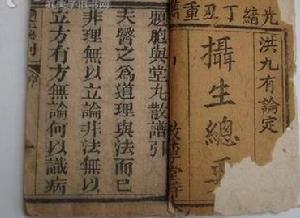 光緒丁丑重
洪九有論定
攝生總
堂丸散譜引
夫醫之為道理與法而已
非理無以立論非法無以
立方有方無論何以識病